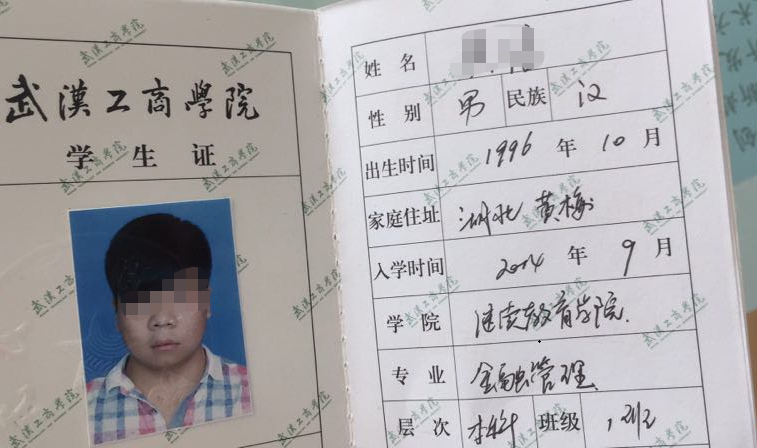 武漢工商學院
学生证
姓名
性别 男 民族 汉
出生时间 1996 年 10 月
家庭住址 湖北 黄梅
入学时间 2014 年 9 月
学院 继续教育学院
专业 金融管理
层次 本科 班级